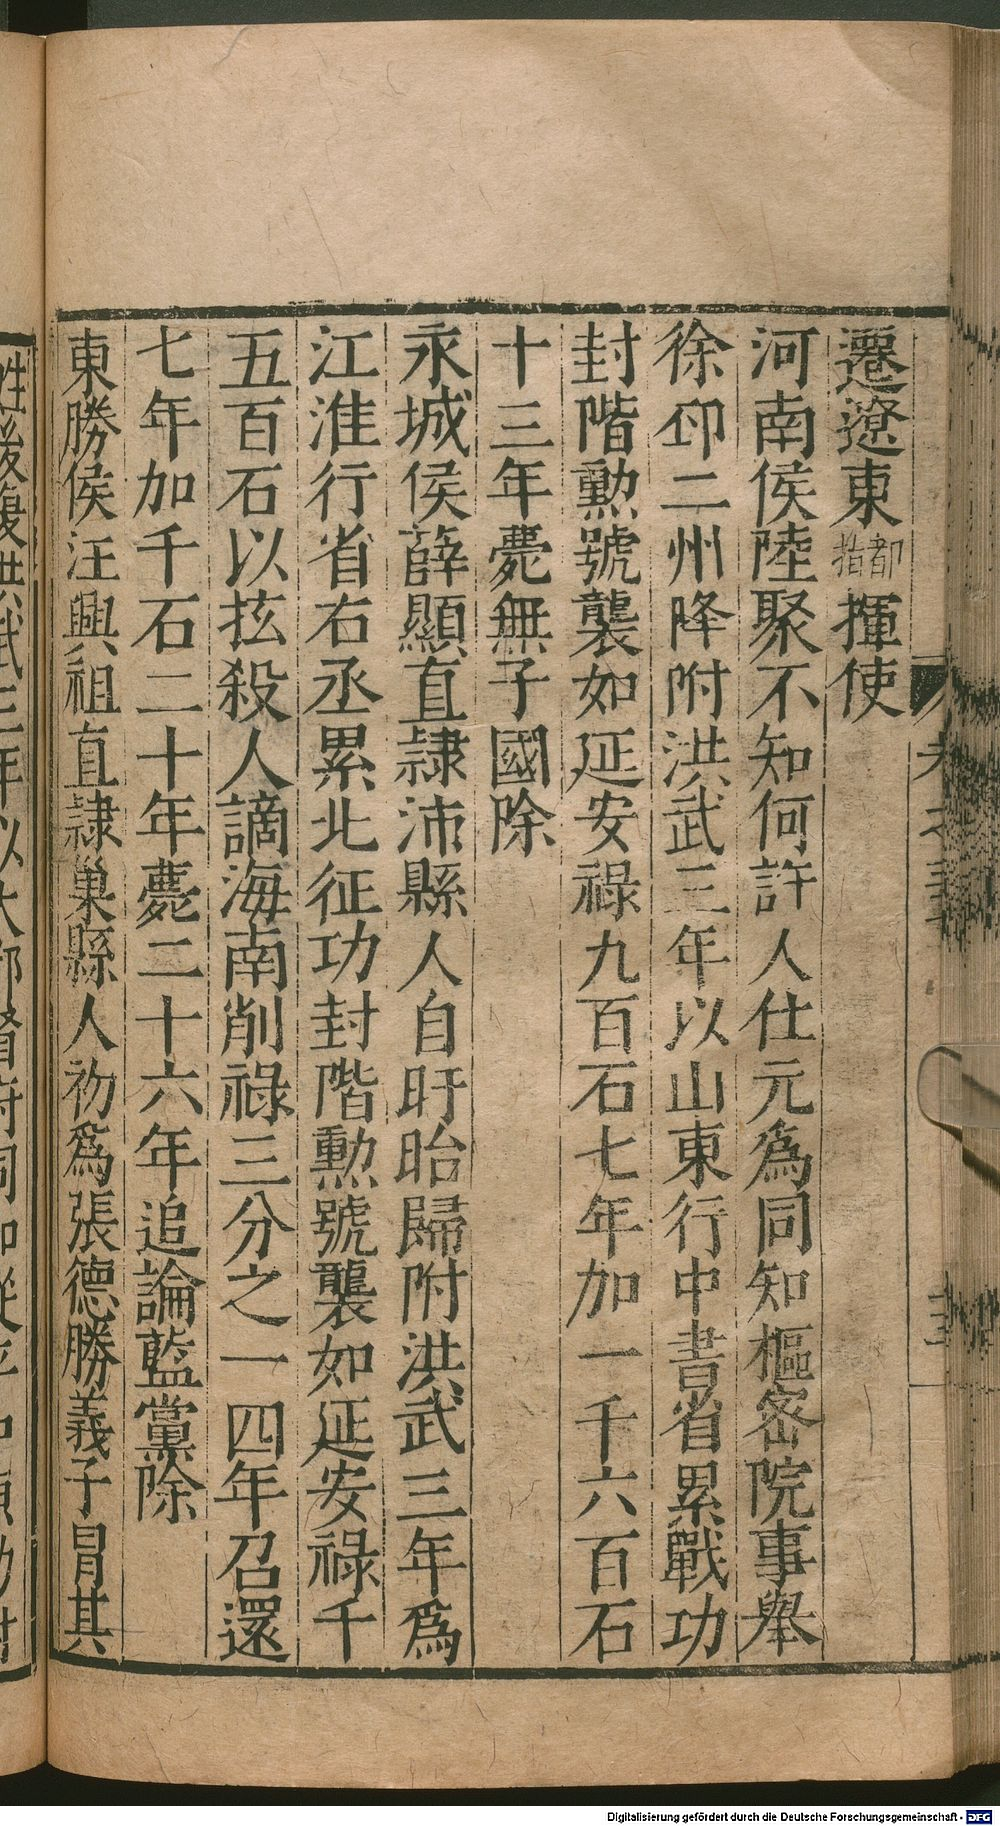 遷遼東都指揮使
河南侯陸聚不知何許人仕元爲同知樞密院事舉
徐邳二州降附洪武三年以山東行中書省累戰功
封階勲號襲如延安祿九百石七年加一千六百石
十三年薨無子國除
永城侯薛顯直隷沛縣人自盱眙歸附洪武三年爲
江淮行省右丞累北征功封階勲號襲如延安祿千
五百石以㧋殺人謫海南削祿三分之一四年召還
七年加千石二十年薨二十六年追論藍黨除
東勝侯汪興祖直隷巢縣人初爲張德勝義子冒其
姓後復洪武三年以大都督府同知從平
Digitalisierung gefördert durch die Deutsche Forschungsgemeinschaft - DFG